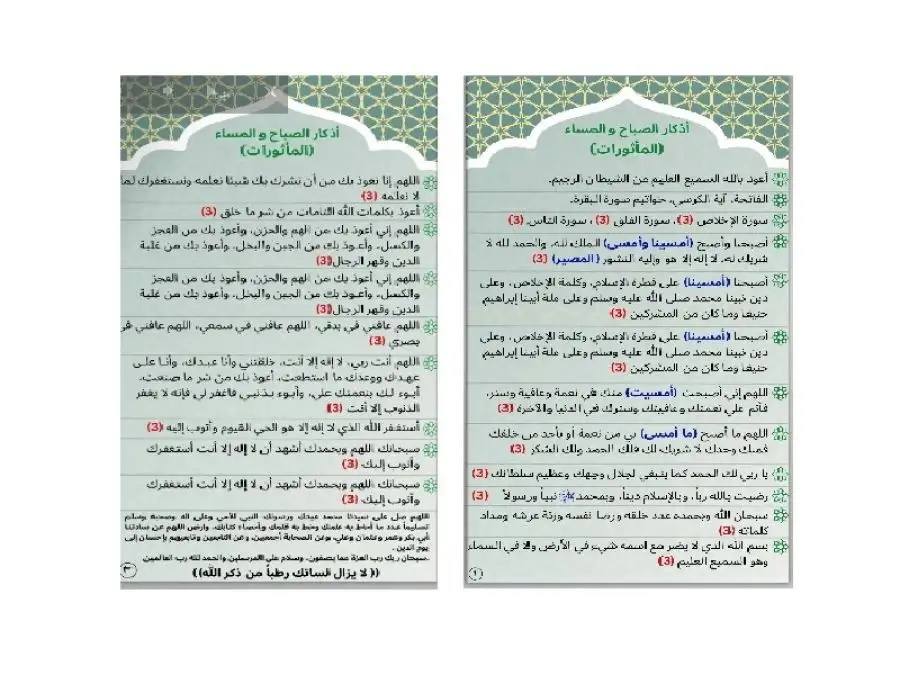 أذكار الصباح و المساء
(المأثورات)
أعوذ بالله السميع العليم من الشيطان الرجيم.
الفاتحة، آية الكرسي، خواتيم سورة البقرة.
سورة الإخلاص (3)، سورة الفلق (3)، سورة الناس (3)
أصبحنا وأصبح (أمسينا وأمسى) الملك لله، والحمد لله لا
شريك له، لا إله إلا هو وإليه النشور (المصير) (3)
أصبحنا (أمسينا) على فطرة الإسلام، وكلمة الإخلاص، وعلى
دين نبينا محمد صلى الله عليه وسلم وعلى ملة أبينا إبراهيم
حنيفا وما كان من المشركين (3)
أصبحنا (أمسينا) على فطرة الإسلام، وكلمة الإخلاص، وعلى
دين نبينا محمد صلى الله عليه وسلم وعلى ملة أبينا إبراهيم
حنيفا وما كان من المشركين (3)
اللهم إني أصبحت (أمسيت) منك في نعمة وعافية وستر،
فأتم علي نعمتك وعافيتك وسترك في الدنيا والآخرة (3)
اللهم ما أصبح (ما أمسى) بي من نعمة أو بأحد من خلقك
فمنك وحدك لا شريك لك فلك الحمد ولك الشكر (3)
يا ربي لك الحمد كما ينبغي لجلال وجهك وعظيم سلطانك (3)
رضيت بالله ربا، وبالإسلام دينا، وبمحمد ﷺ نبيا ورسولا (3)
سبحان الله وبحمده عدد خلقه ورضا نفسه وزنة عرشه ومداد
كلماته (3)
بسم الله الذي لا يضر مع اسمه شيء في الأرض ولا في السماء
وهو السميع العليم (3)
١
أذكار الصباح و المساء
(المأثورات)
اللهم إنا نعوذ بك من أن نشرك بك شيئا نعلمه ونستغفرك لما
لا نعلمه (3)
أعوذ بكلمات الله التامات من شر ما خلق (3)
اللهم إني أعوذ بك من الهم والحزن، وأعوذ بك من العجز
والكسل، وأعوذ بك من الجبن والبخل، وأعوذ بك من غلبة
الدين وقهر الرجال (3)
اللهم إني أعوذ بك من الهم والحزن، وأعوذ بك من العجز
والكسل، وأعوذ بك من الجبن والبخل، وأعوذ بك من غلبة
الدين وقهر الرجال (3)
اللهم عافني في بدني، اللهم عافني في سمعي، اللهم عافني في
بصري (3)
اللهم أنت ربي، لا إله إلا أنت، خلقتني وأنا عبدك، وأنا على
عهدك ووعدك ما استطعت، أعوذ بك من شر ما صنعت،
أبوء لك بنعمتك علي، وأبوء بذنبي فاغفر لي فإنه لا يغفر
الذنوب إلا أنت (3)
أستغفر الله الذي لا إله إلا هو الحي القيوم وأتوب إليه (3)
سبحانك اللهم وبحمدك أشهد أن لا إله إلا أنت أستغفرك
وأتوب إليك (3)
سبحانك اللهم وبحمدك أشهد أن لا إله إلا أنت أستغفرك
وأتوب إليك (3)
اللهم صل على سيدنا محمد عبدك ورسولك النبي الأمي وعلى آله وصحبه وسلم
تسليما عدد ما أحاط به علمك وخط به قلمك وأحصاه كتابك، وارض اللهم عن سادتنا
أبي بكر وعمر وعثمان وعلي، وعن الصحابة أجمعين، وعن التابعين وتابعيهم بإحسان إلى
يوم الدين .
سبحان ربك رب العزة عما يصفون، وسلام على المرسلين والحمد لله رب العالمين.
(( لا يزال لسانك رطبا من ذكر الله))